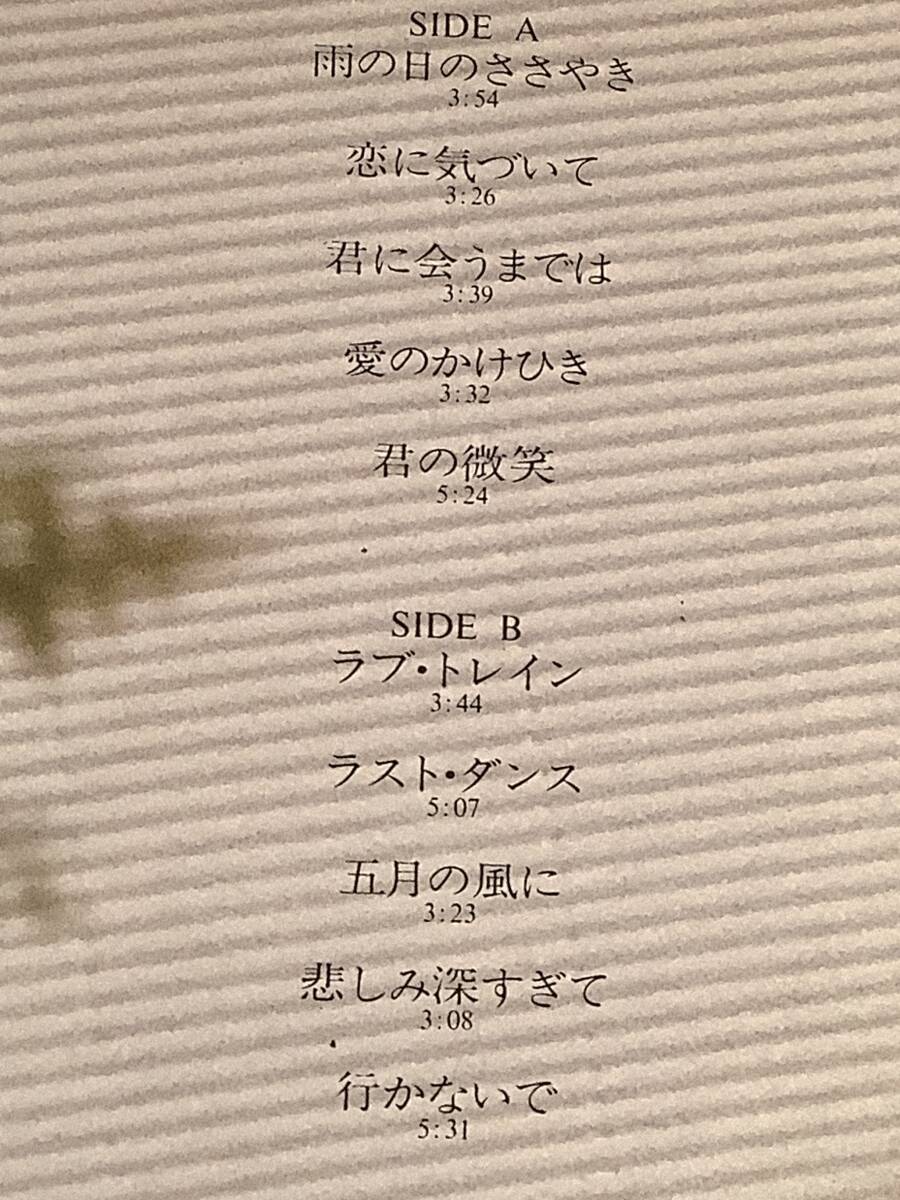 SIDE A
雨の日のささやき
3:54
恋に気づいて
3:26
君に会うまでは
3:39
愛のかけひき
3:32
君の微笑
5:24
SIDE B
ラブ・トレイン
3:44
ラスト・ダンス
5:07
五月の風に
3:23
悲しみ深すぎて
3:08
行かないで
5:31